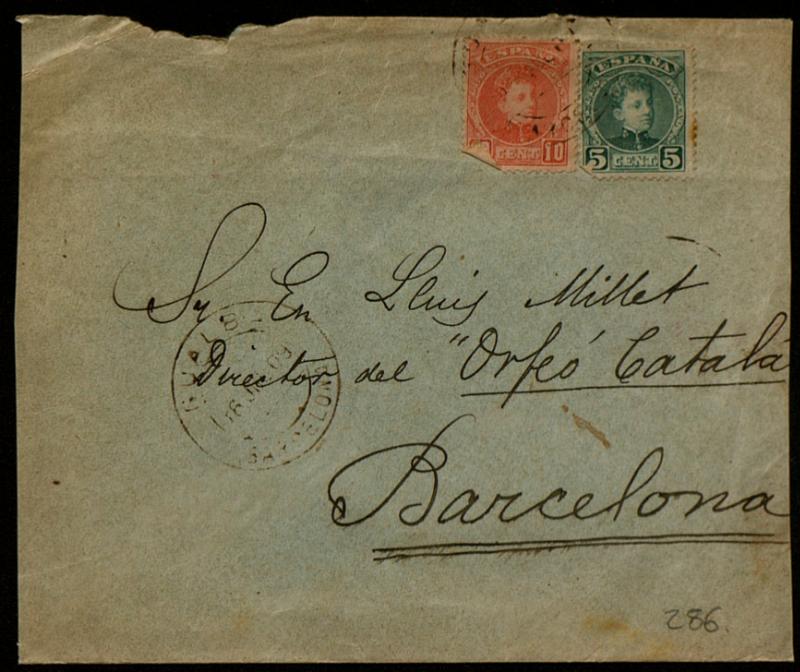 ESPAÑA
ESPAÑA
CENT. 10
5 CENT. 5
Sr En Lluis Millet
Director del "Orfeó Catalá
Barcelona
BARCELONA
286.